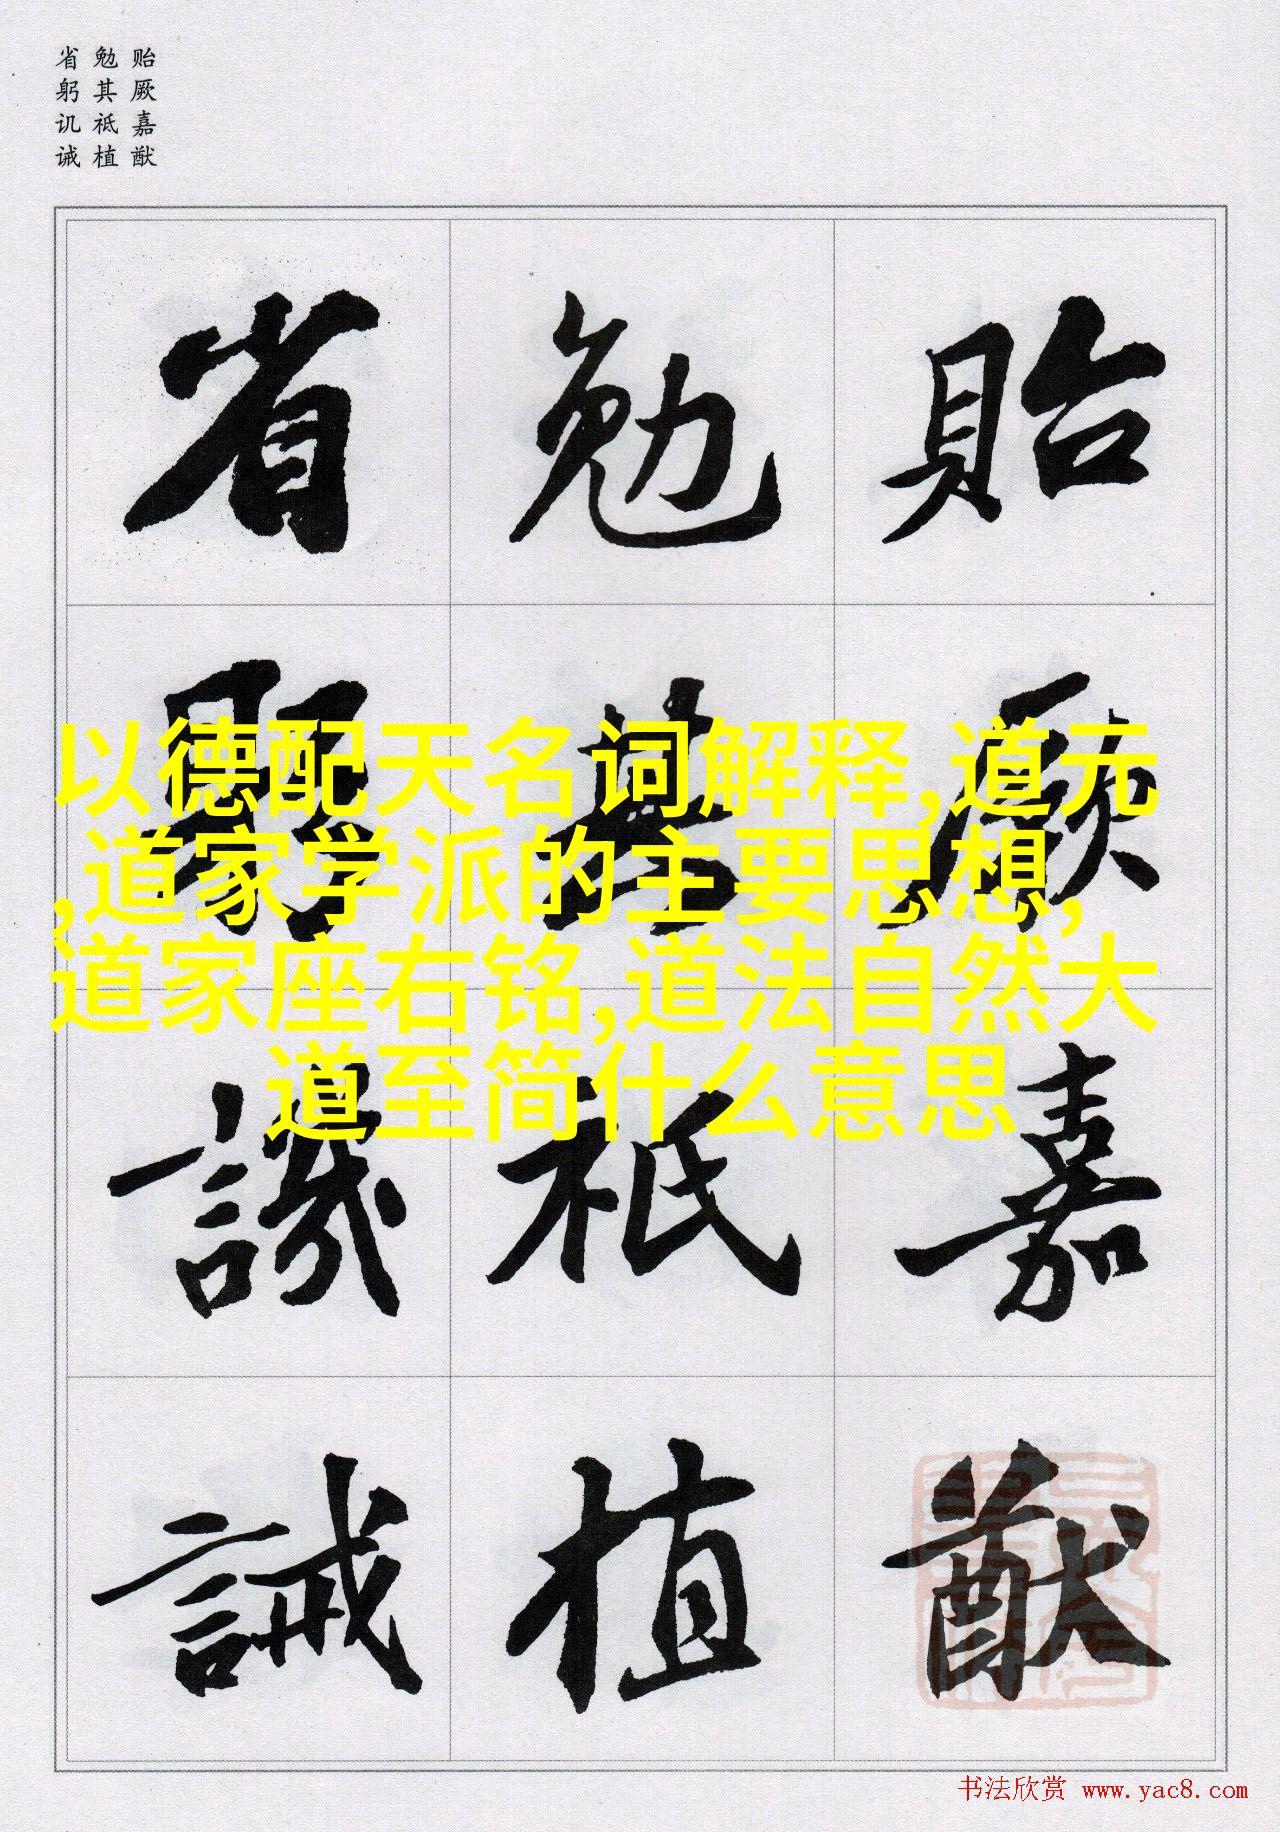 贻厥嘉猷
勉其祗植
省躬讥诫
貽厥嘉猷
勉其祗植
省躬譏誡
以德配天名词解释,道元
,道家学派的主要思想,
道家座右铭,道法自然大
道至简什么意思
书法欣赏 www.yac8.com